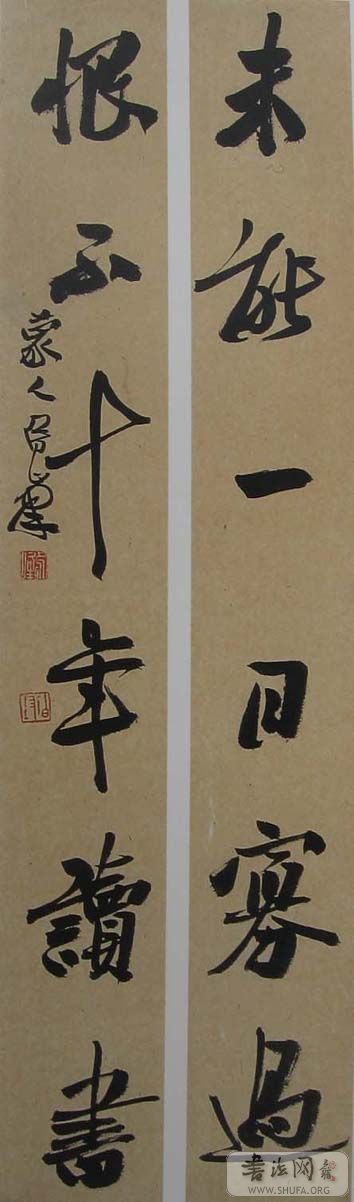 未能一日寡過
恨不十年讀書
蒙人
書法网
WWW.SHUFA.ORG